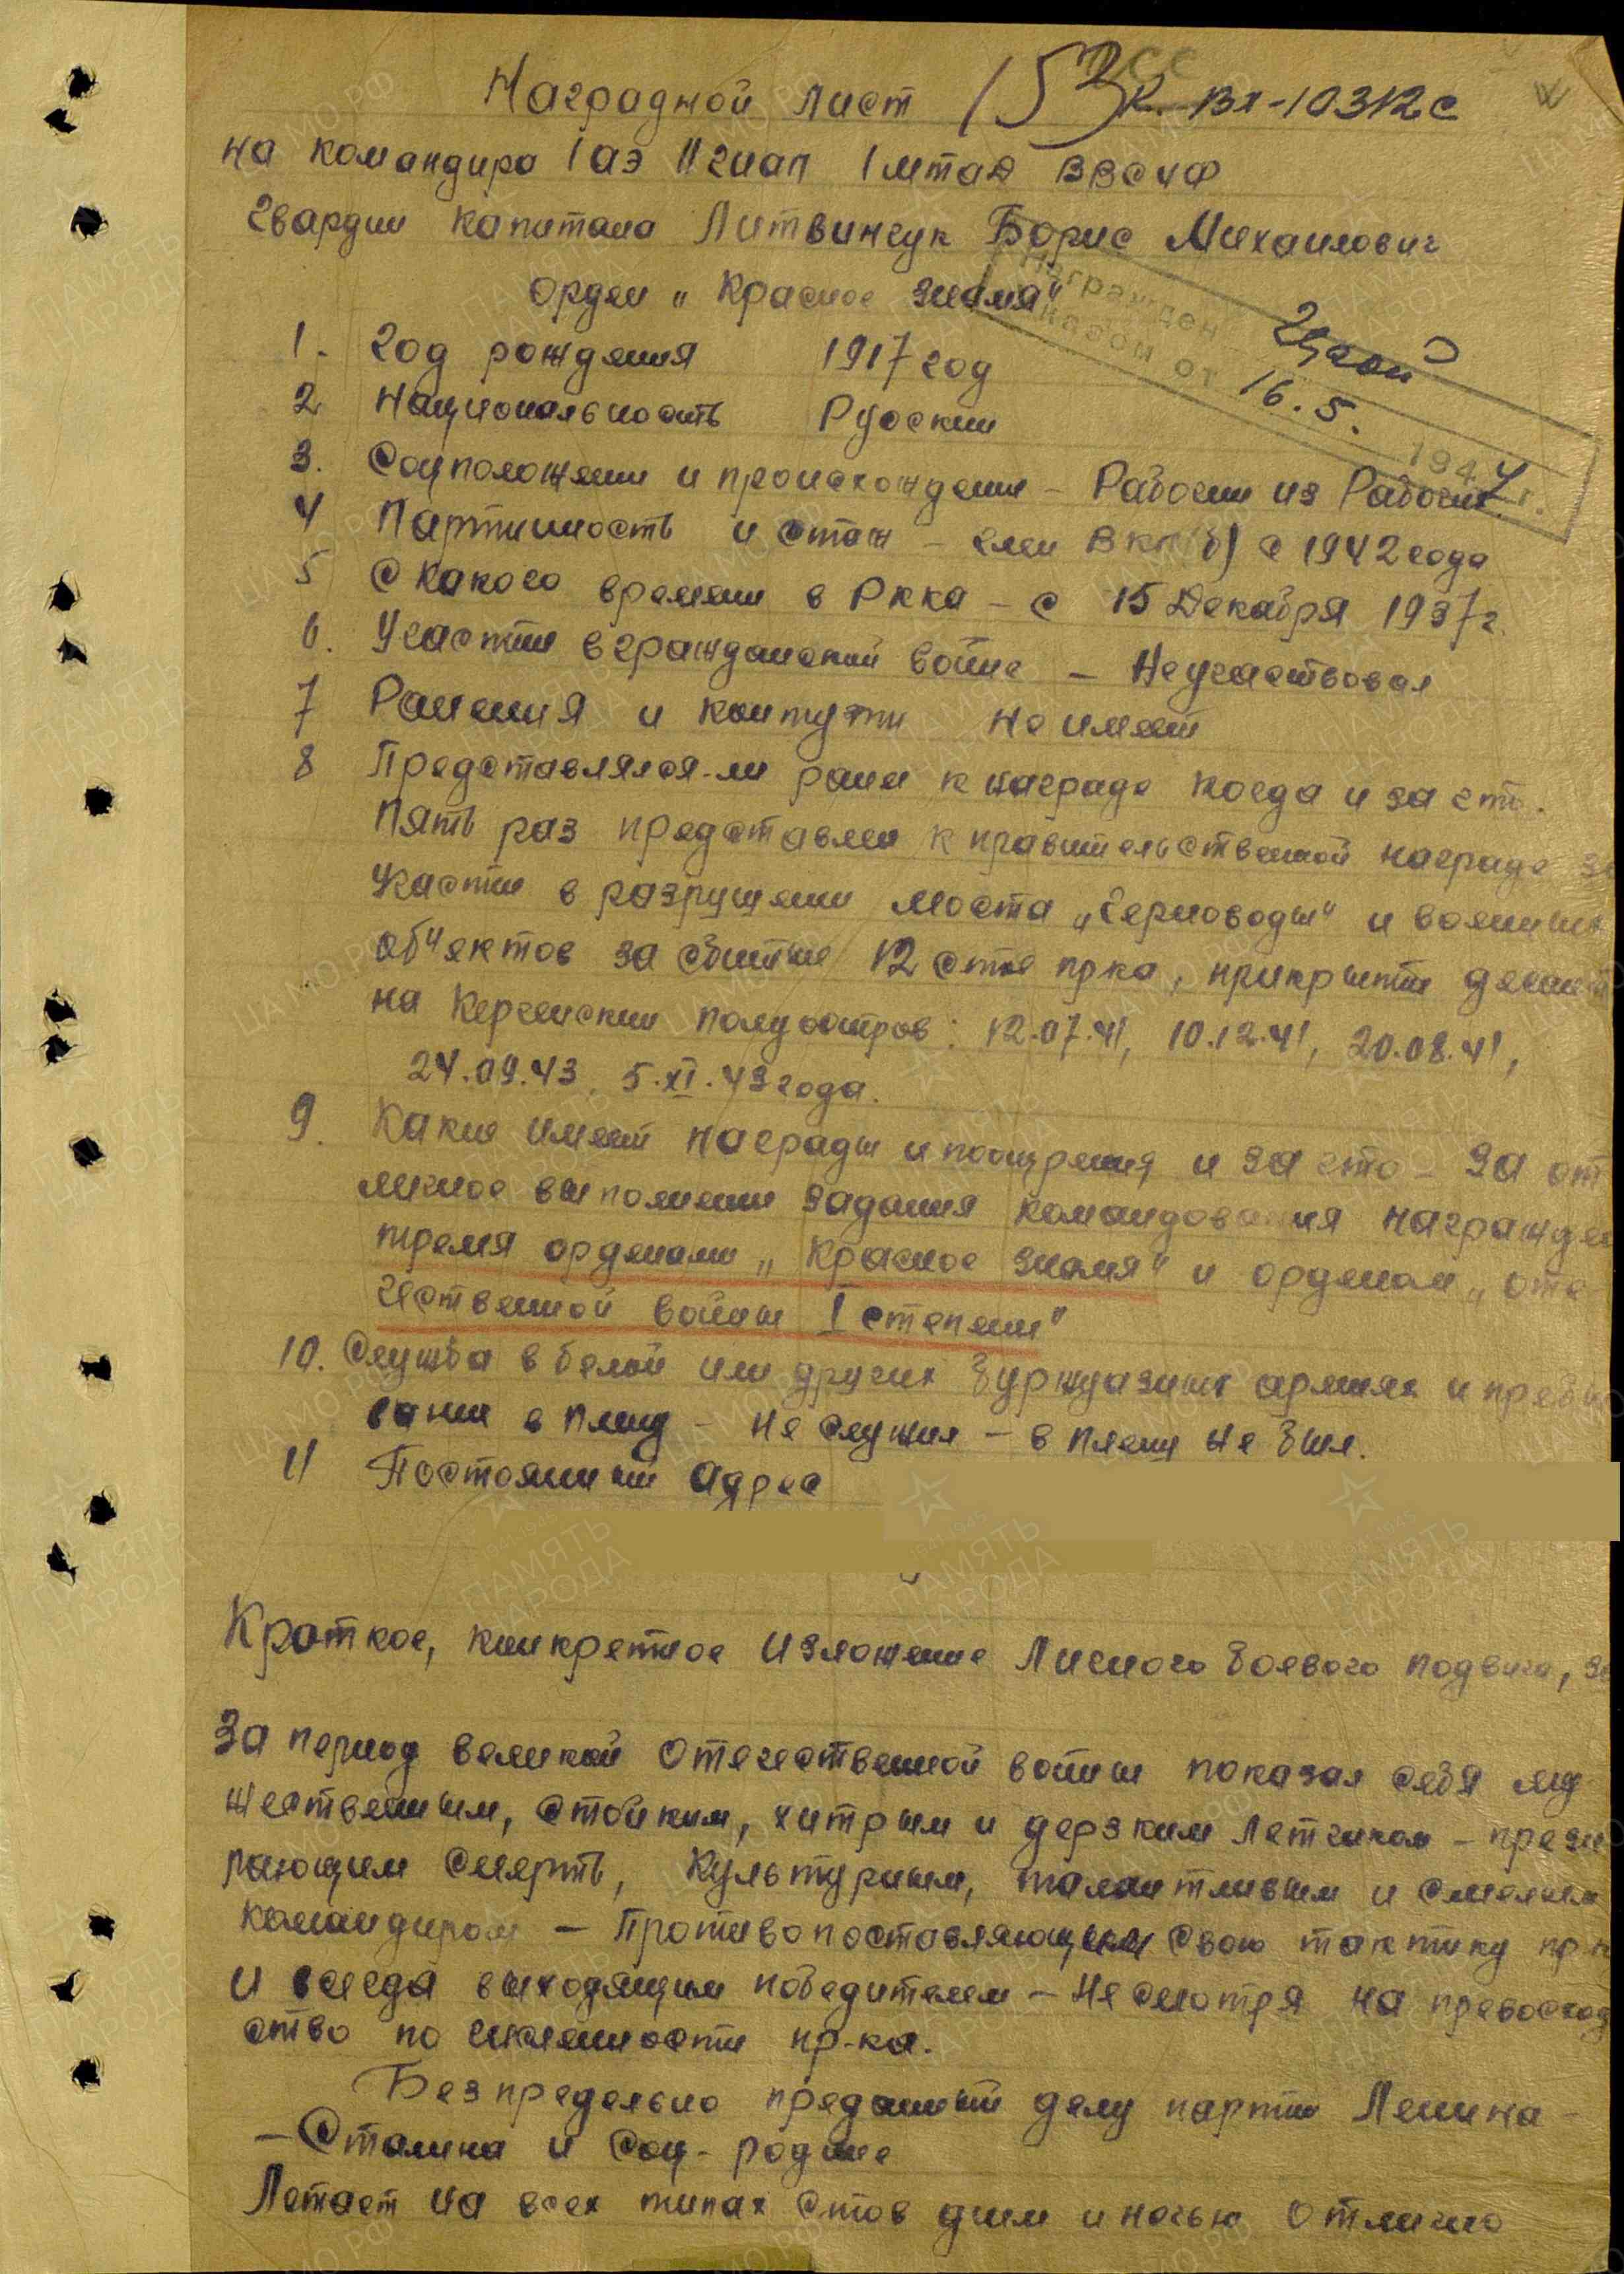 Наградной лист 153 Вх-10312с
на командира 1 аэ 11 гиап 1 мтад ВВСЧФ
Гвардии капитана Литвинчук Борис Михайлович
орден „Красное знамя"
Награжден
Приказом от 16.5. 1944 г.
1. Год рождения 1917 год
2 Национальность Русский
3. Соцположении и происхождении - Рабочий из Рабочих
4 Партийность и стаж - член ВКП(б) с 1942 года
5 С какого времени в РККА - с 15 Декабря 1937 г.
6. Участии в гражданской войне - Не участвовал
7 Ранения и контузии не имеет
8 Представлялся-ли ранее к награде когда и за что.
Пять раз представлен к правительственной награде за
участии в разрушении моста „Черноводы" и военных
об"ектов за сбитые 12 стов пр-ка, прикрытие десанта
на Керченский полуостров: 12.07.41, 10.12.41, 20.08.41,
24.09.43, 5.XI.43 года.
9. Какие имеет награды и поощрения и за что - За от
личное выполнении задания командования награжден
тремя орденами „Красное знамя" и орденом „Оте
чественной войны I степени"
10. Служба в белой или других буржуазных армиях и пребы
вании в плену - не служил - в плену не был.
11 Постоянный адрес
Краткое, конкретное изложение Личного боевого подвига,
За период великой Отечественной войны показал себя му
жественным, стойким, хитрым и дерзким летчиком - прези
рающим смерть, культурным, талантливым и смелым
командиром - Противопоставляющим свою тактику пр-ку
и всегда выходящим победителем - Не смотря на превосход
ство по численности пр-ка.
Безпредельно преданный делу партии Ленина -
- Сталина и Соц-родине
Летает на всех типах стов днем и ночью отлично